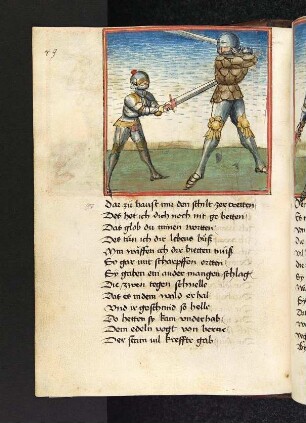 Dar zü haust mir den schilt zer hawen
Des het ich dich noch nit ge betten
Das glob du minen wortten
Des tün ich dir lebens büß
Min waffen ich dir bietten müß
Sy gar mit scharpffen ortten
Sy gaben ein ander mangen schlag
Die zwen tegen schnelle
Das es in dem wald er hal
Und
so helle
Do hetten sy kain underhab
Dem edeln vogt von berne
Der
vil kreffte gab